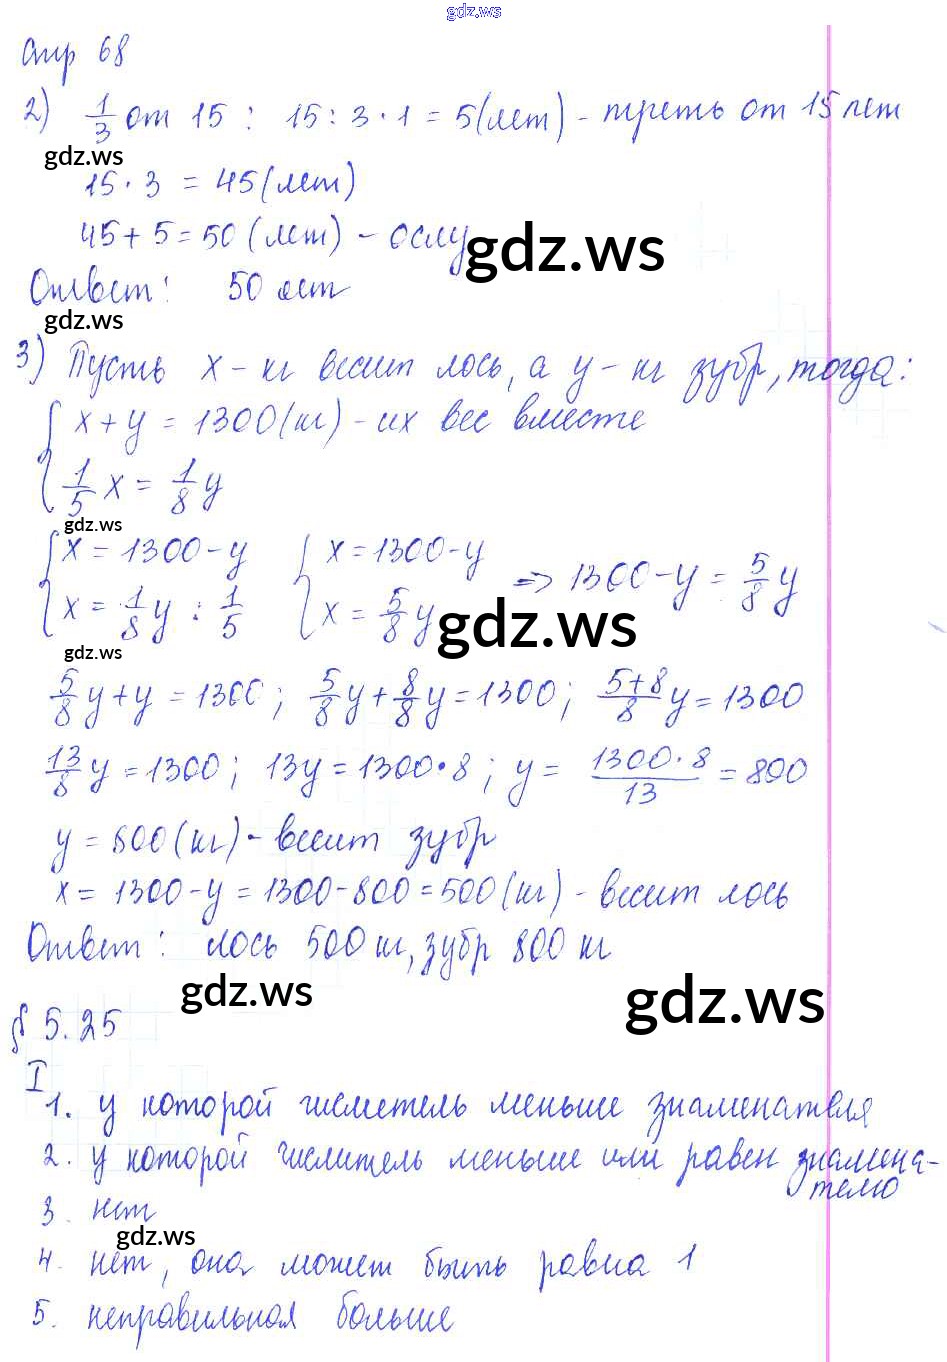 gdz.ws
стр 68
2) 1/3 от 15 : 15 : 3 · 1 = 5 (лет) - треть от 15 лет
gdz.ws
15 · 3 = 45 (лет)
45 + 5 = 50 (лет) - ослу
gdz.ws
Ответ: 50 лет
gdz.ws
3) Пусть x - кг весит лось, а y - кг зубр, тогда:
{ x + y = 1300 (кг) - их вес вместе
{ 1/5 x = 1/8 y
gdz.ws
{ x = 1300 - y { x = 1300 - y
{ x = 1/8 y : 1/5 { x = 5/8 y => 1300 - y = 5/8 y
gdz.ws
gdz.ws
5/8 y + y = 1300 ; 5/8 y + 8/8 y = 1300 ; (5+8)/8 y = 1300
13/8 y = 1300 ; 13y = 1300 · 8 ; y = (1300 · 8)/13 = 800
y = 800 (кг) - весит зубр
x = 1300 - y = 1300 - 800 = 500 (кг) - весит лось
Ответ: лось 500 кг, зубр 800 кг
gdz.ws
gdz.ws
§ 5.25
I
1. у которой числитель меньше знаменателя
2. у которой числитель меньше или равен знамена-
телю
3. нет
gdz.ws
4. нет, она может быть равна 1
5. неправильная больше